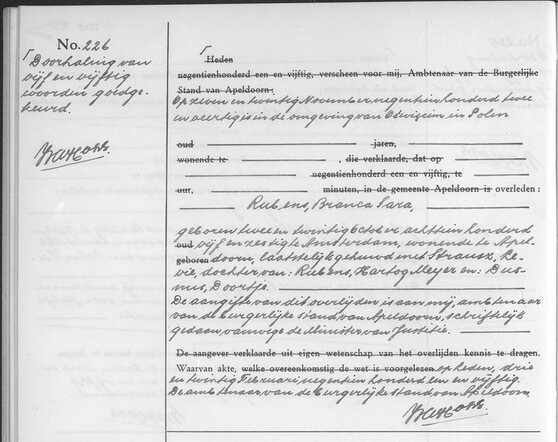 No. 226
Doorhaling van
vijf en vijftig
woorden goedge-
keurd.
Heden
negentienhonderd een en vijftig, verscheen voor mij, Ambtenaar van de Burgerlijke
Stand van Apeldoorn:
Op zeven en twintig November negentienhonderd twee
en veertig is in de omgeving van Oswiecim in Polen
oud jaren,
wonende te , die verklaarde, dat op
negentienhonderd een en vijftig, te
uur, minuten, in de gemeente Apeldoorn is overleden:
Rubens, Branca Sara,
geboren twee en twintig October achttienhonderd
oud vijf en zestig te Amsterdam, wonende te Apel-
geboren doorn, laatstelijk gehuwd met Strausz, Le-
vie, dochter van: Rubens, Hartog Meyer en: Dus-
nus, Doortje.
De aangifte van dit overlijden is aan mij, ambtenaar
van de burgerlijke stand van Apeldoorn, schriftelijk
gedaan vanwege de Minister van Justitie.
De aangever verklaarde uit eigen wetenschap van het overlijden kennis te dragen.
Waarvan akte, welke overeenkomstig de wet is voorgelezen op heden, drie
en twintig Februari negentienhonderd een en vijftig.
De ambtenaar van de burgerlijke stand van Apeldoorn,